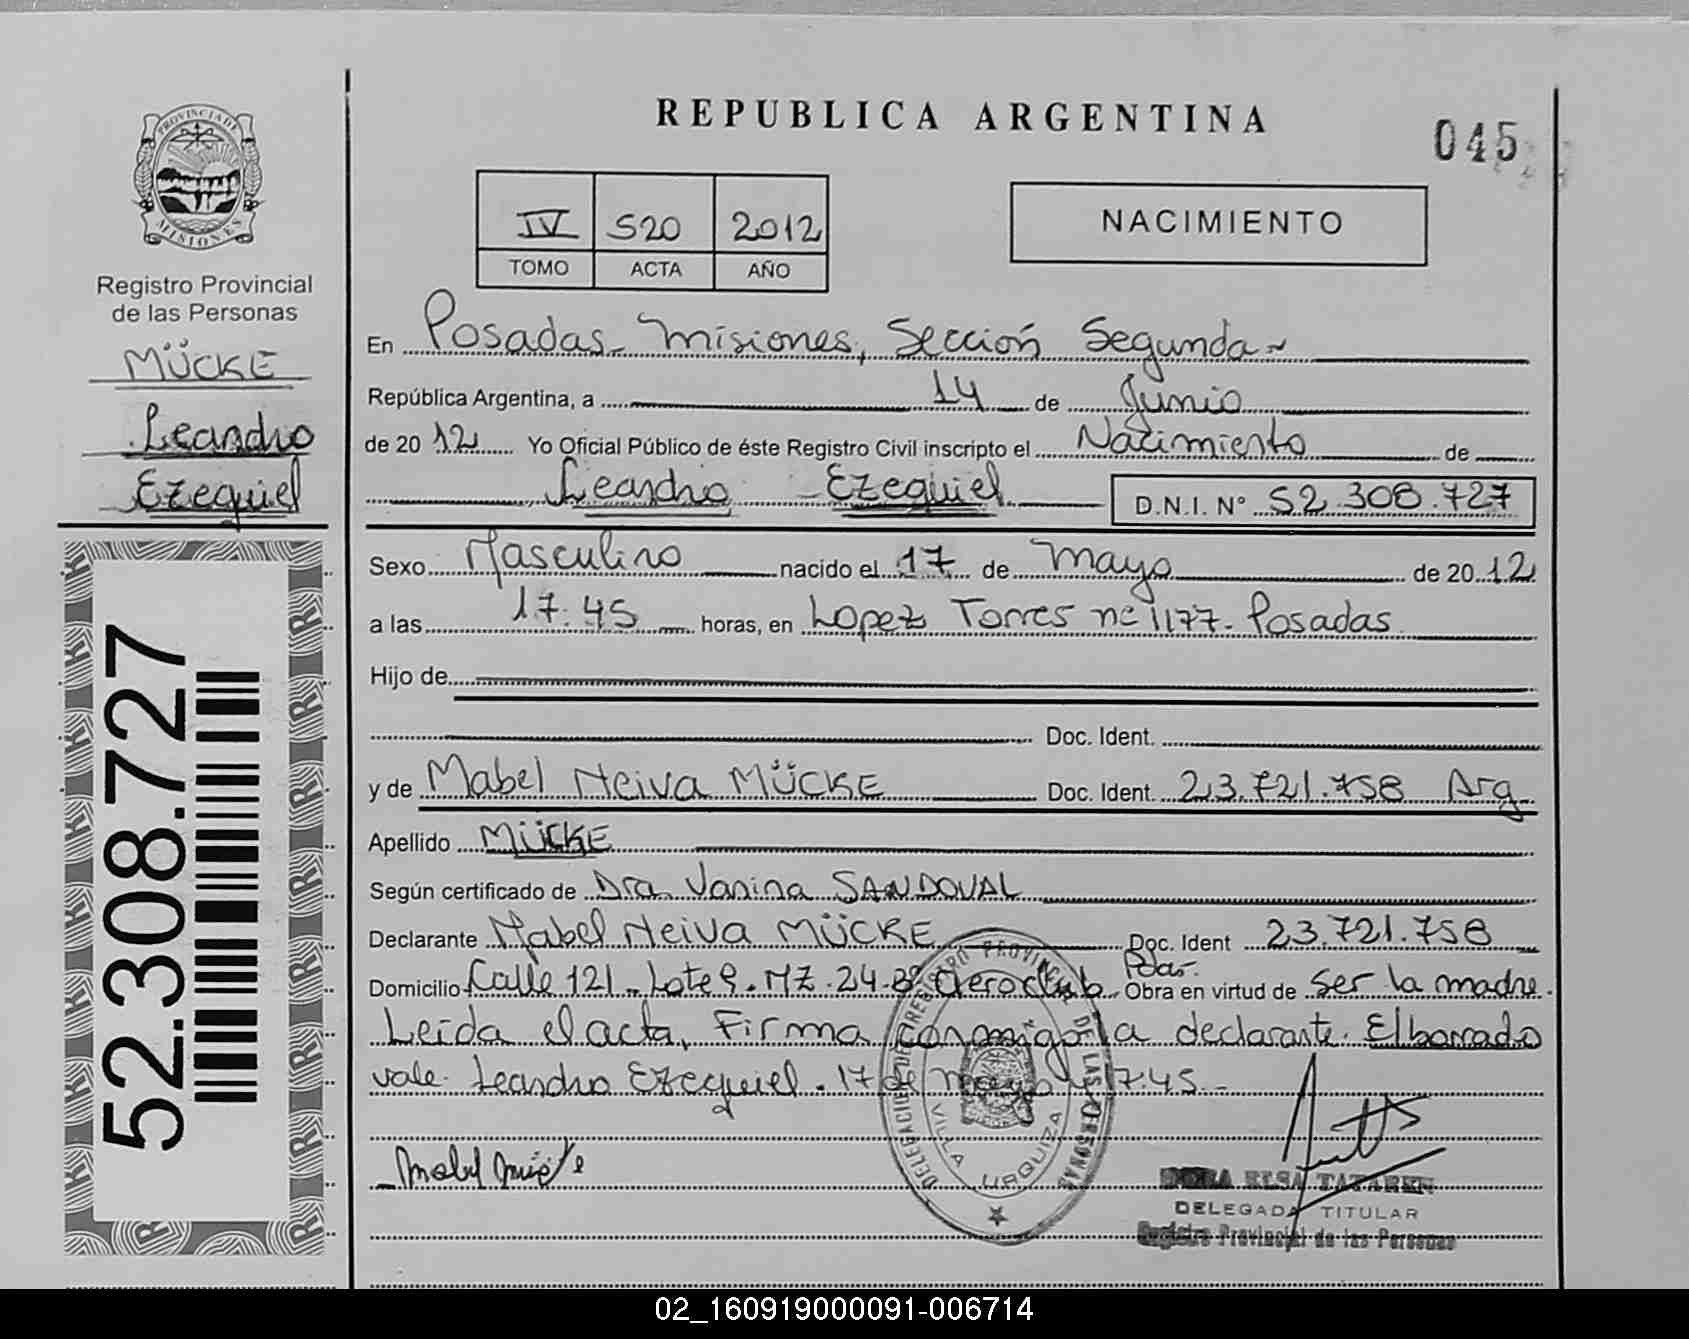 REPUBLICA ARGENTINA
045
PROVINCIA DE
MISIONES
Registro Provincial
de las Personas
MÜCKE
Leandro
Ezequiel
52.308.727
IV 520 2012
TOMO ACTA AÑO
NACIMIENTO
En Posadas - Misiones, Sección Segunda
República Argentina, a 14 de Junio
de 2012 Yo Oficial Público de éste Registro Civil inscripto el Nacimiento de
Leandro Ezequiel D.N.I. N° 52.308.727
Sexo Masculino nacido el 17 de Mayo de 2012
a las 17:45 horas, en Lopez Torres nc 1177 - Posadas
Hijo de
Doc. Ident.
y de Mabel Neiva MÜCKE Doc. Ident. 23.721.758 Arg
Apellido MÜCKE
Según certificado de Dra. Vanina SANDOVAL
Declarante Mabel Neiva MÜCKE Doc. Ident 23.721.758
Domicilio Calle 121 - Lote 9 - MZ. 24 - Bº Aeroclub Pdas. Obra en virtud de ser la madre.
Leída el acta, Firma conmigo la declarante. El borrado
vale. Leandro Ezequiel. 17 de Mayo 17:45.-
DELEGACION DE REGISTRO PROVINCIAL DE LAS PERSONAS
VILLA URQUIZA
Mabel Mücke
ELSA
DELEGADA TITULAR
Registro Provincial de las Personas
02_160919000091-006714